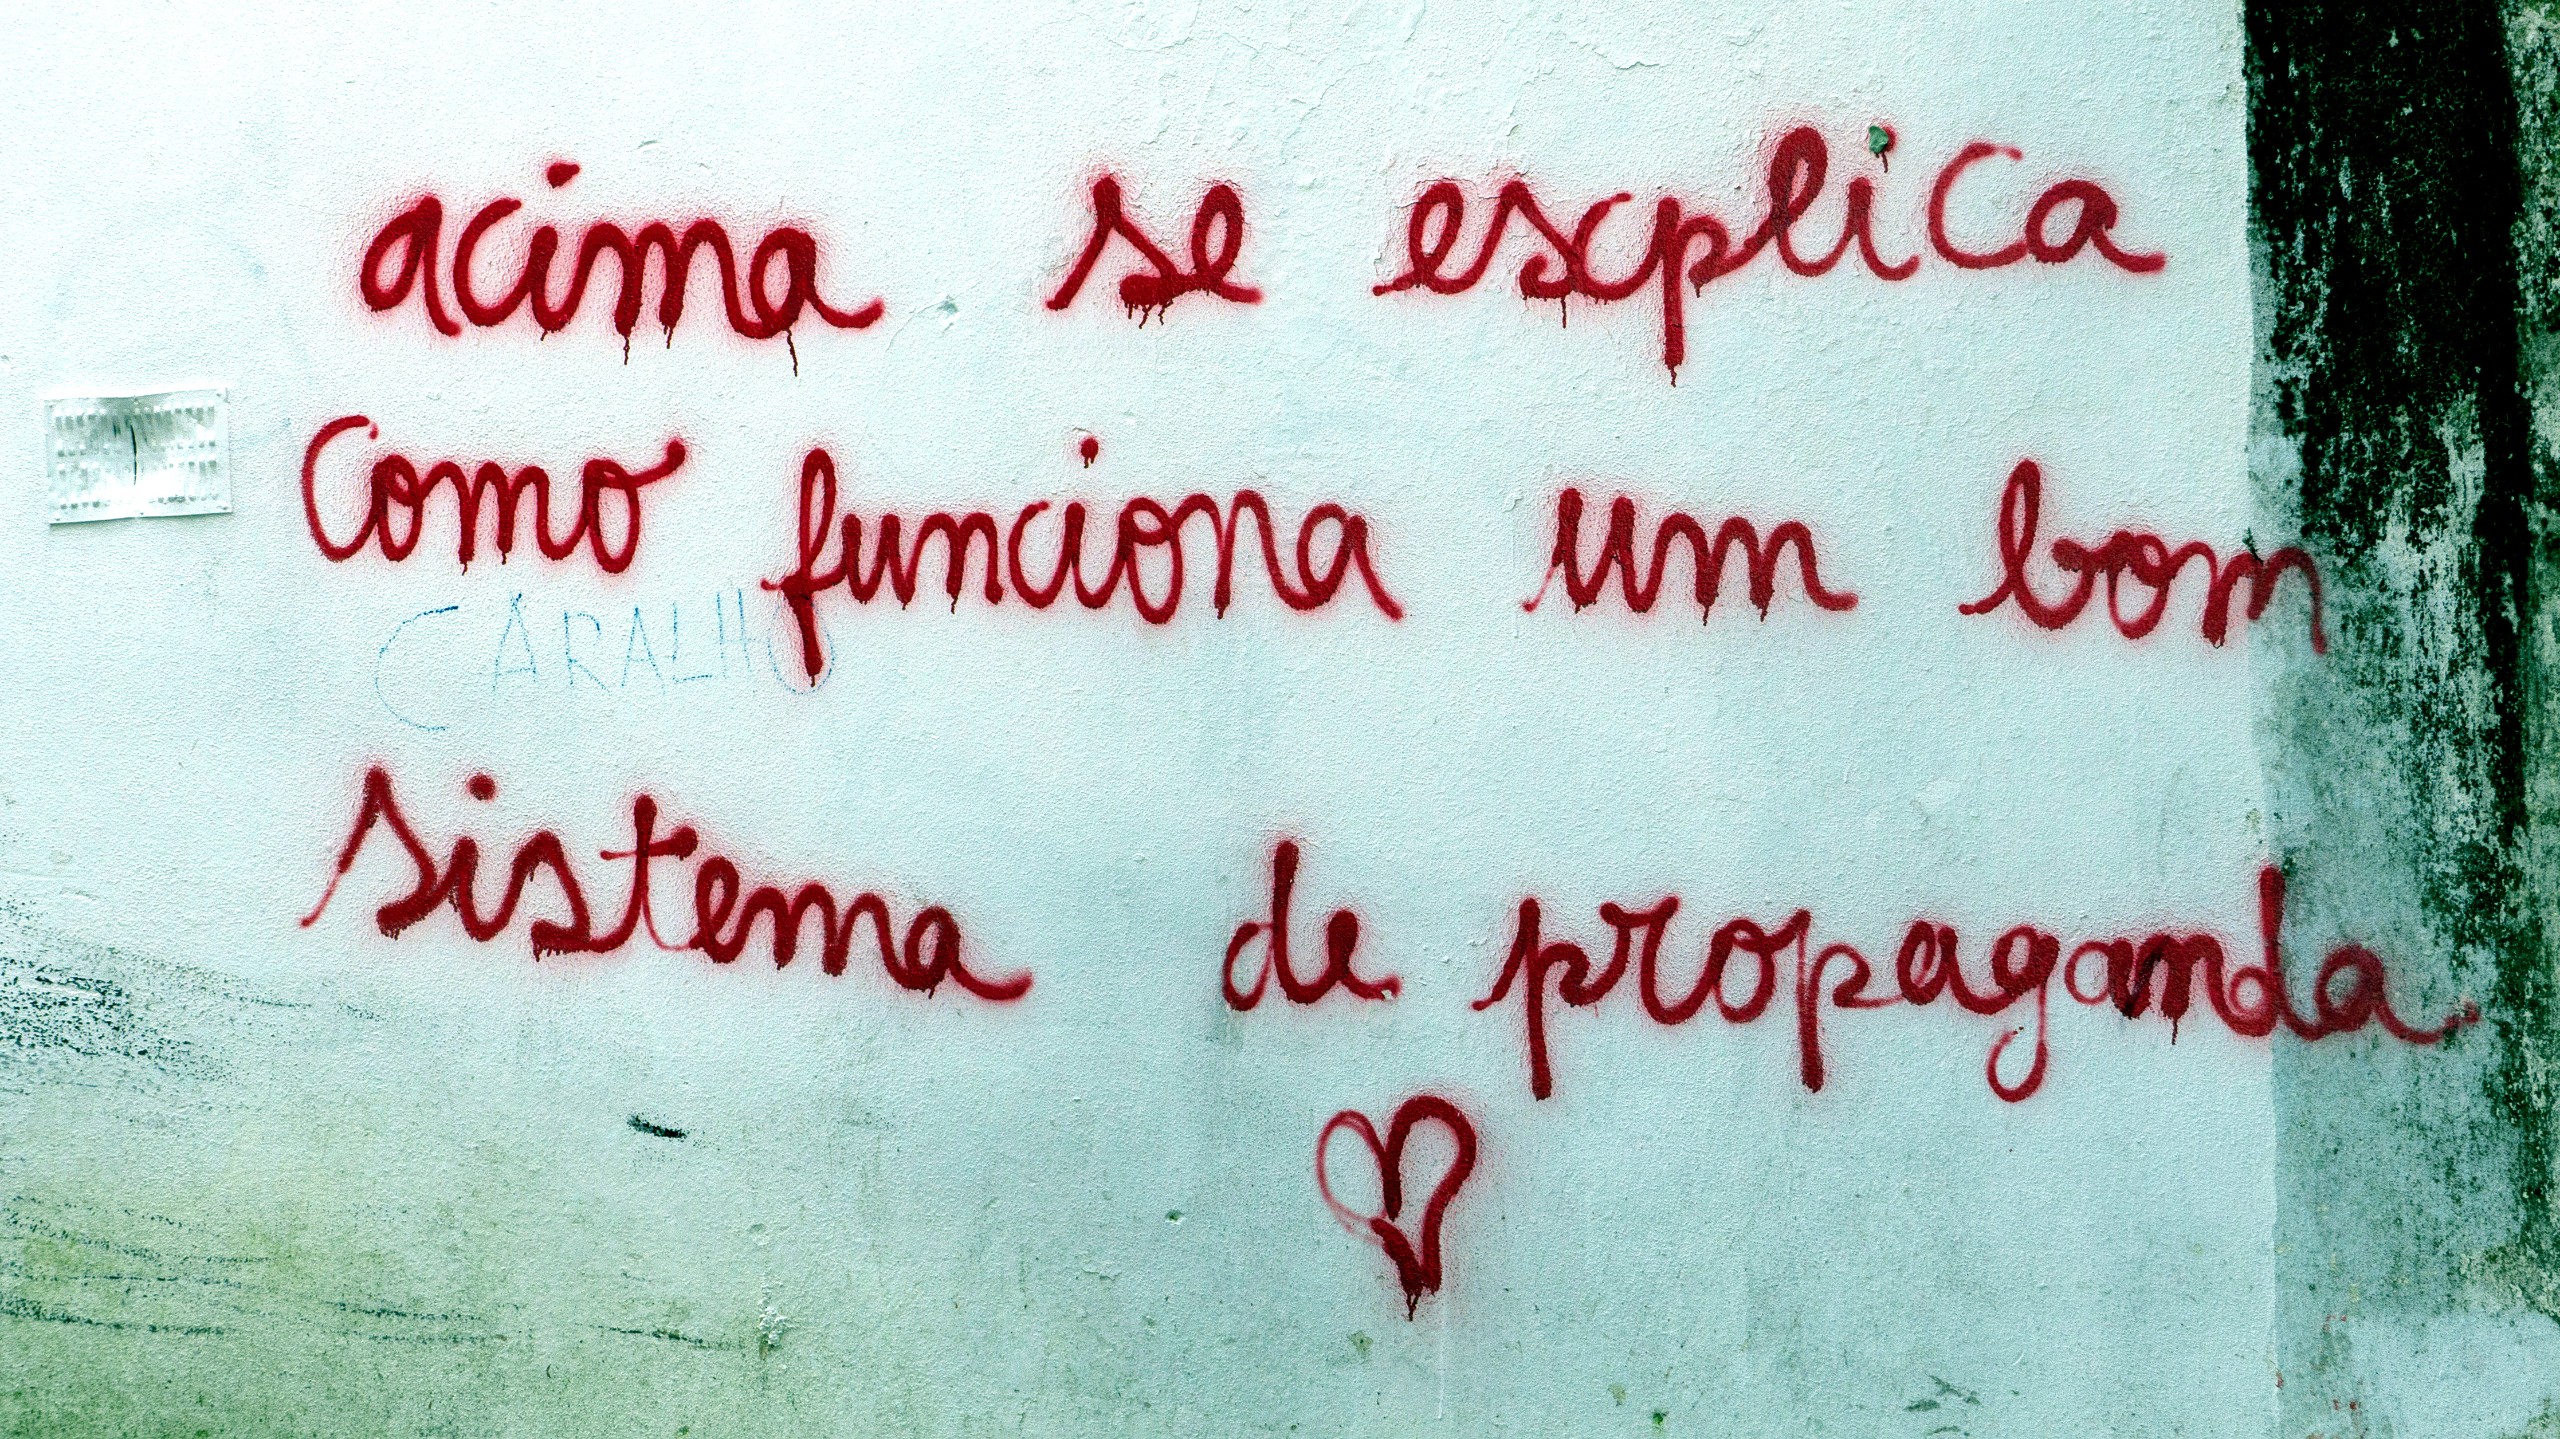 acima se explica
como funciona um bom
CARALHO
sistema de propaganda